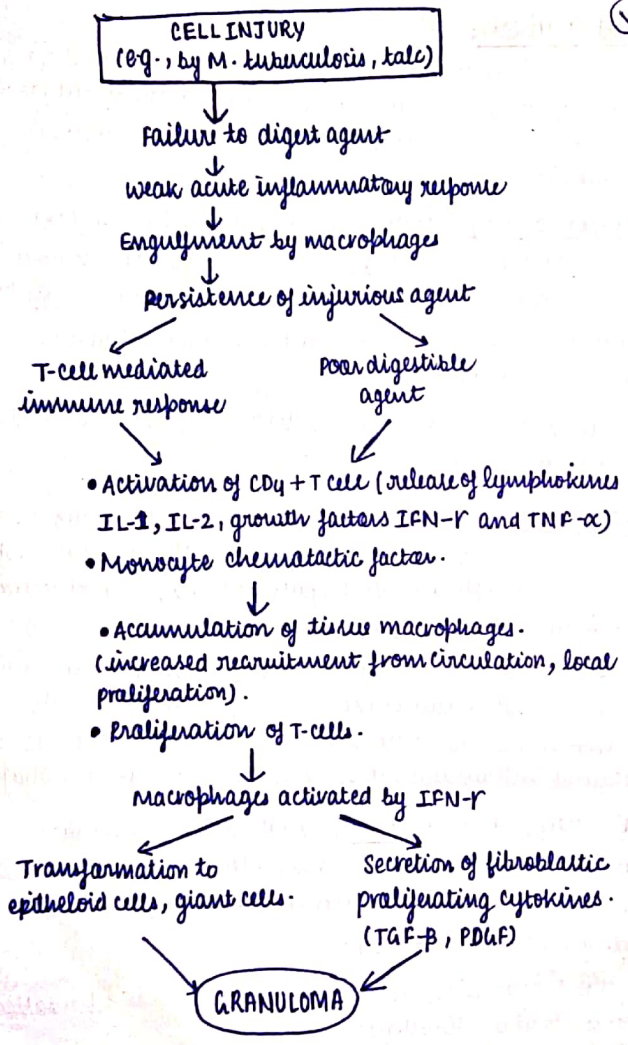 CELL INJURY
(e.g., by M. tuberculosis, talc)
Failure to digest agent
weak acute inflammatory response
Engulfment by macrophages
Persistence of injurious agent
T-cell mediated
immune response
Poor digestible
agent
• Activation of CD4+ T cell (release of lymphokines
IL-1, IL-2, growth factors IFN-γ and TNF-α)
• Monocyte chematactic factor.
• Accumulation of tissue macrophages.
(increased recruitment from circulation, local
proliferation).
• Proliferation of T-cells.
Macrophages activated by IFN-γ
Transformation to
epitheloid cells, giant cells.
Secretion of fibroblastic
proliferating cytokines.
(TGF-β, PDGF)
GRANULOMA